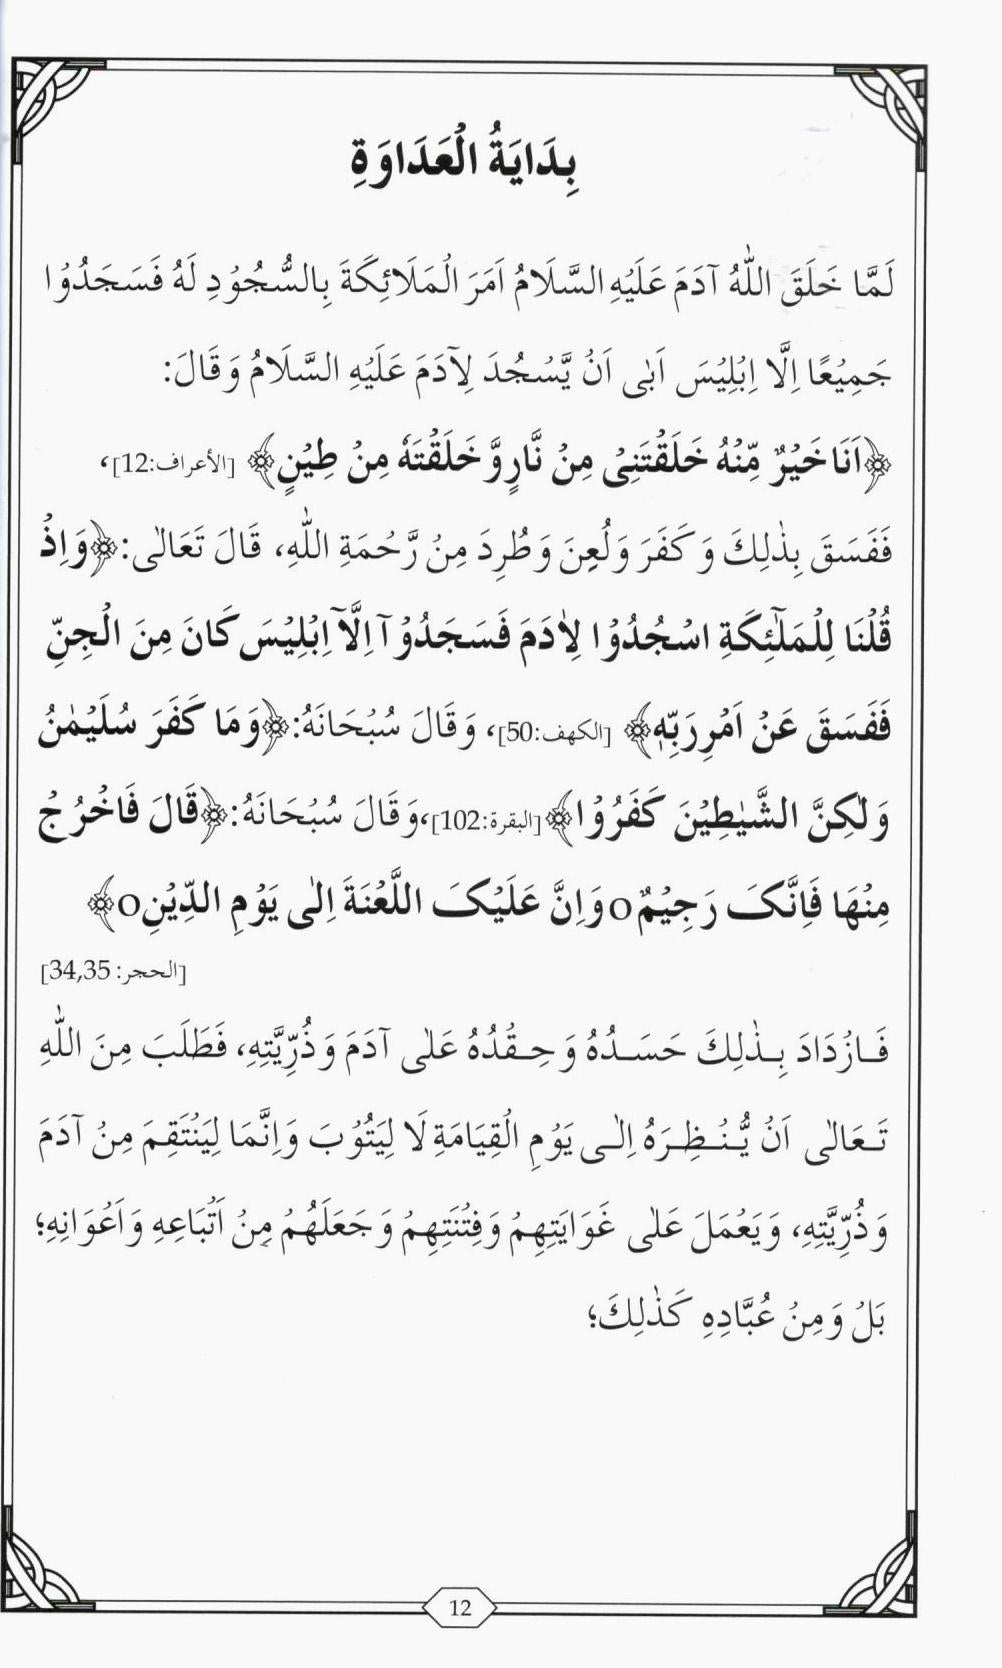 بِدَايَةُ الْعَدَاوَةِ
لَمَّا خَلَقَ اللّٰهُ آدَمَ عَلَيْهِ السَّلَامُ اَمَرَ الْمَلَائِكَةَ بِالسُّجُوْدِ لَهُ فَسَجَدُوْا
جَمِيْعًا اِلَّا اِبْلِيْسَ اَبٰى اَنْ يَّسْجُدَ لِآدَمَ عَلَيْهِ السَّلَامُ وَقَالَ:
﴿اَنَا خَيْرٌ مِّنْهُ خَلَقْتَنِىْ مِنْ نَّارٍ وَّ خَلَقْتَهٗ مِنْ طِيْنٍ﴾ [الأعراف:12]،
فَفَسَقَ بِذٰلِكَ وَكَفَرَ وَلُعِنَ وَطُرِدَ مِنْ رَّحْمَةِ اللّٰهِ، قَالَ تَعَالٰى:﴿وَاِذْ
قُلْنَا لِلْمَلٰٓئِكَةِ اسْجُدُوْا لِاٰدَمَ فَسَجَدُوْآ اِلَّآ اِبْلِيْسَ كَانَ مِنَ الْجِنِّ
فَفَسَقَ عَنْ اَمْرِ رَبِّهٖ﴾ [الكهف:50]، وَقَالَ سُبْحَانَهُ:﴿وَمَا كَفَرَ سُلَيْمٰنُ
وَلٰكِنَّ الشَّيٰطِيْنَ كَفَرُوْا﴾[البقرة:102]،وَقَالَ سُبْحَانَهُ:﴿قَالَ فَاخْرُجْ
مِنْهَا فَاِنَّكَ رَجِيْمٌ o وَاِنَّ عَلَيْكَ اللَّعْنَةَ اِلٰى يَوْمِ الدِّيْنِ o﴾
[الحجر: 34,35]
فَازْدَادَ بِذٰلِكَ حَسَدُهُ وَحِقْدُهُ عَلٰى آدَمَ وَذُرِّيَّتِهِ، فَطَلَبَ مِنَ اللّٰهِ
تَعَالٰى اَنْ يُّنْظِرَهُ اِلٰى يَوْمِ الْقِيَامَةِ لَا لِيَتُوْبَ وَاِنَّمَا لِيَنْتَقِمَ مِنْ آدَمَ
وَذُرِّيَّتِهِ، وَيَعْمَلَ عَلٰى غَوَايَتِهِمْ وَفِتْنَتِهِمْ وَجَعَلَهُمْ مِنْ اَتْبَاعِهِ وَاَعْوَانِهِ؛
بَلْ وَمِنْ عُبَّادِهِ كَذٰلِكَ؛
12